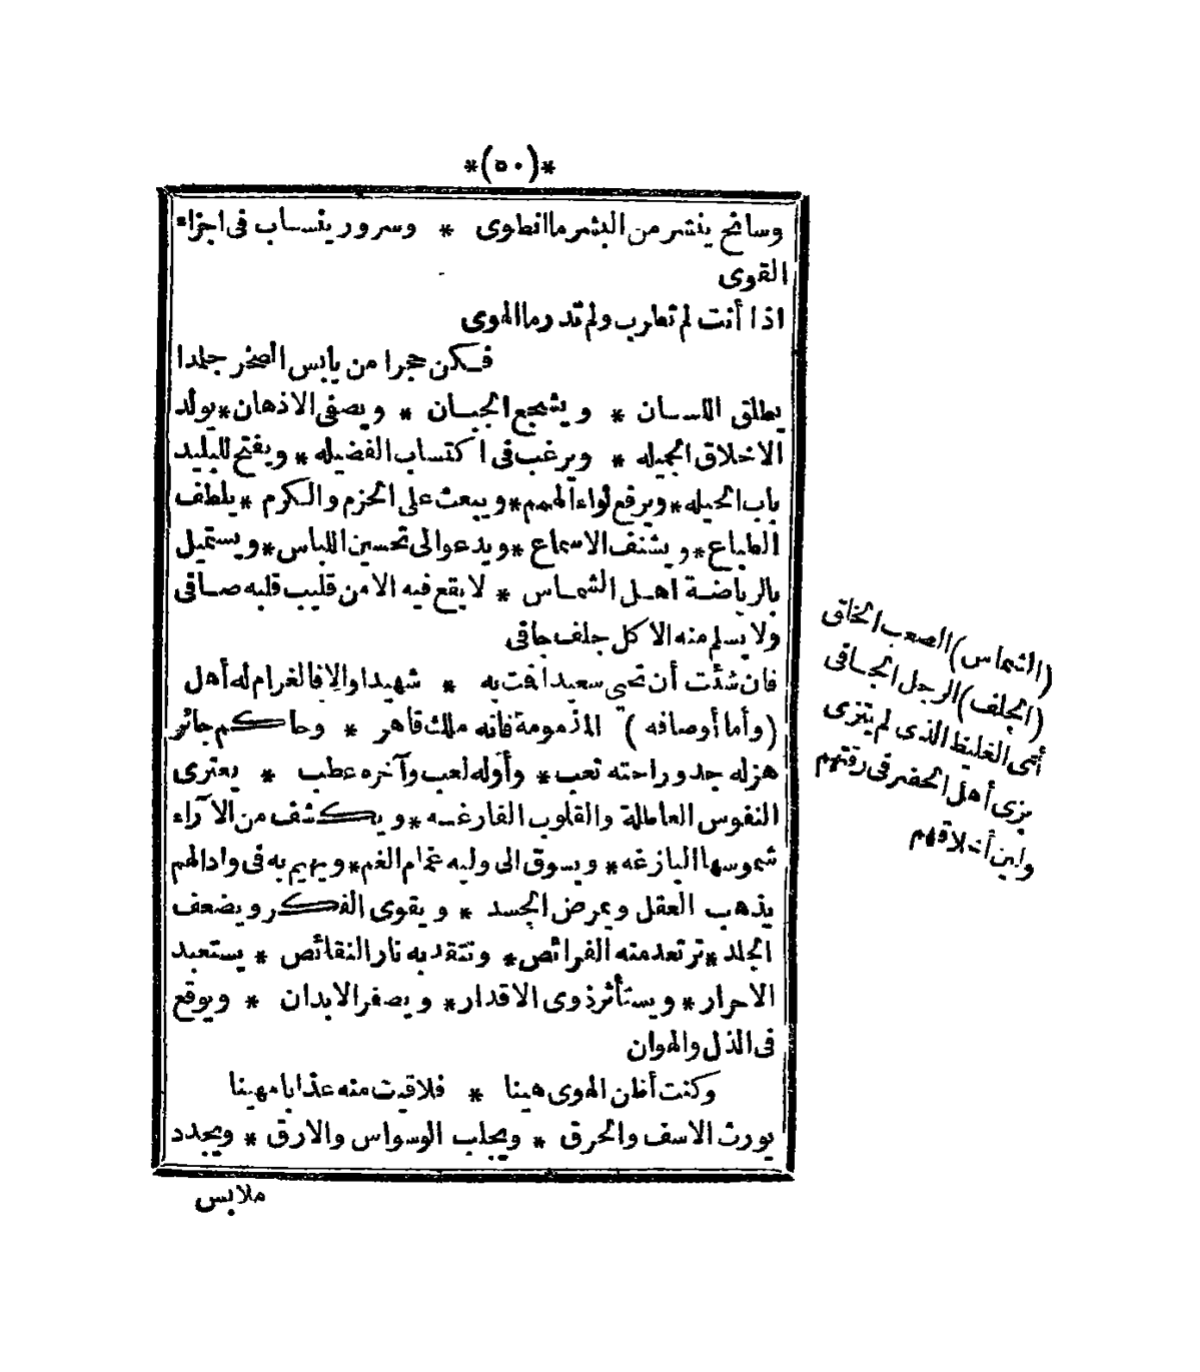 *(٥٠)*
وسانح ينشر من البشر ما انطوى * وسرور ينساب فى اجزاء
القوى
اذا أنت لم تطرب ولم تدر ما الهوى
فكن حجرا من يابس الصخر جلدا
يطلق اللسان * ويشجع الجبان * ويصفى الاذهان * يولد
الاخلاق الجميله * ويرغب فى اكتساب الفضيله * ويفتح للبليد
باب الحيله * ويرفع لواء الهمم * ويبعث على الحزم والكرم * يلطف
الطباع * ويشنف الاسماع * ويدعو الى تحسين اللباس * ويستميل
بالرياضة اهل الشماس * لا يقع فيه الا من قليب قلبه صافى
ولا يسلم منه الا كل جلف جافى
فان شئت أن تحيى سعيدا فمت به * شهيدا والا فالغرام له أهل
(وأما أوصافه) المذمومة فانه ملك قاهر * وحاكم جائر
هزله جد وراحته تعب * وأوله لعب وآخره عطب * يعترى
النفوس العاطلة والقلوب الفارغه * ويكشف من الآراء
شموسها البازغه * ويسوق الى وليه غمام الغم * ويهيم به فى واد الهم
يذهب العقل ويمرض الجسد * ويقوى الفكر ويضعف
الجلد * ترتعد منه الفرائص * وتتقد به نار النقائص * يستعبد
الاحرار * ويستأثر ذوى الاقدار * ويصفر الابدان * ويوقع
فى الذل والهوان
وكنت أظن الهوى هينا * فلاقيت منه عذابا مهينا
يورث الاسف والحرق * ويجلب الوسواس والارق * ويجدد
ملابس
(الشماس) الصعب الخلق
(الجلف) الرجل الجافى
أى الغليظ الذى لم يتزى
بزى أهل الحضر فى رقتهم
ولين أخلاقهم